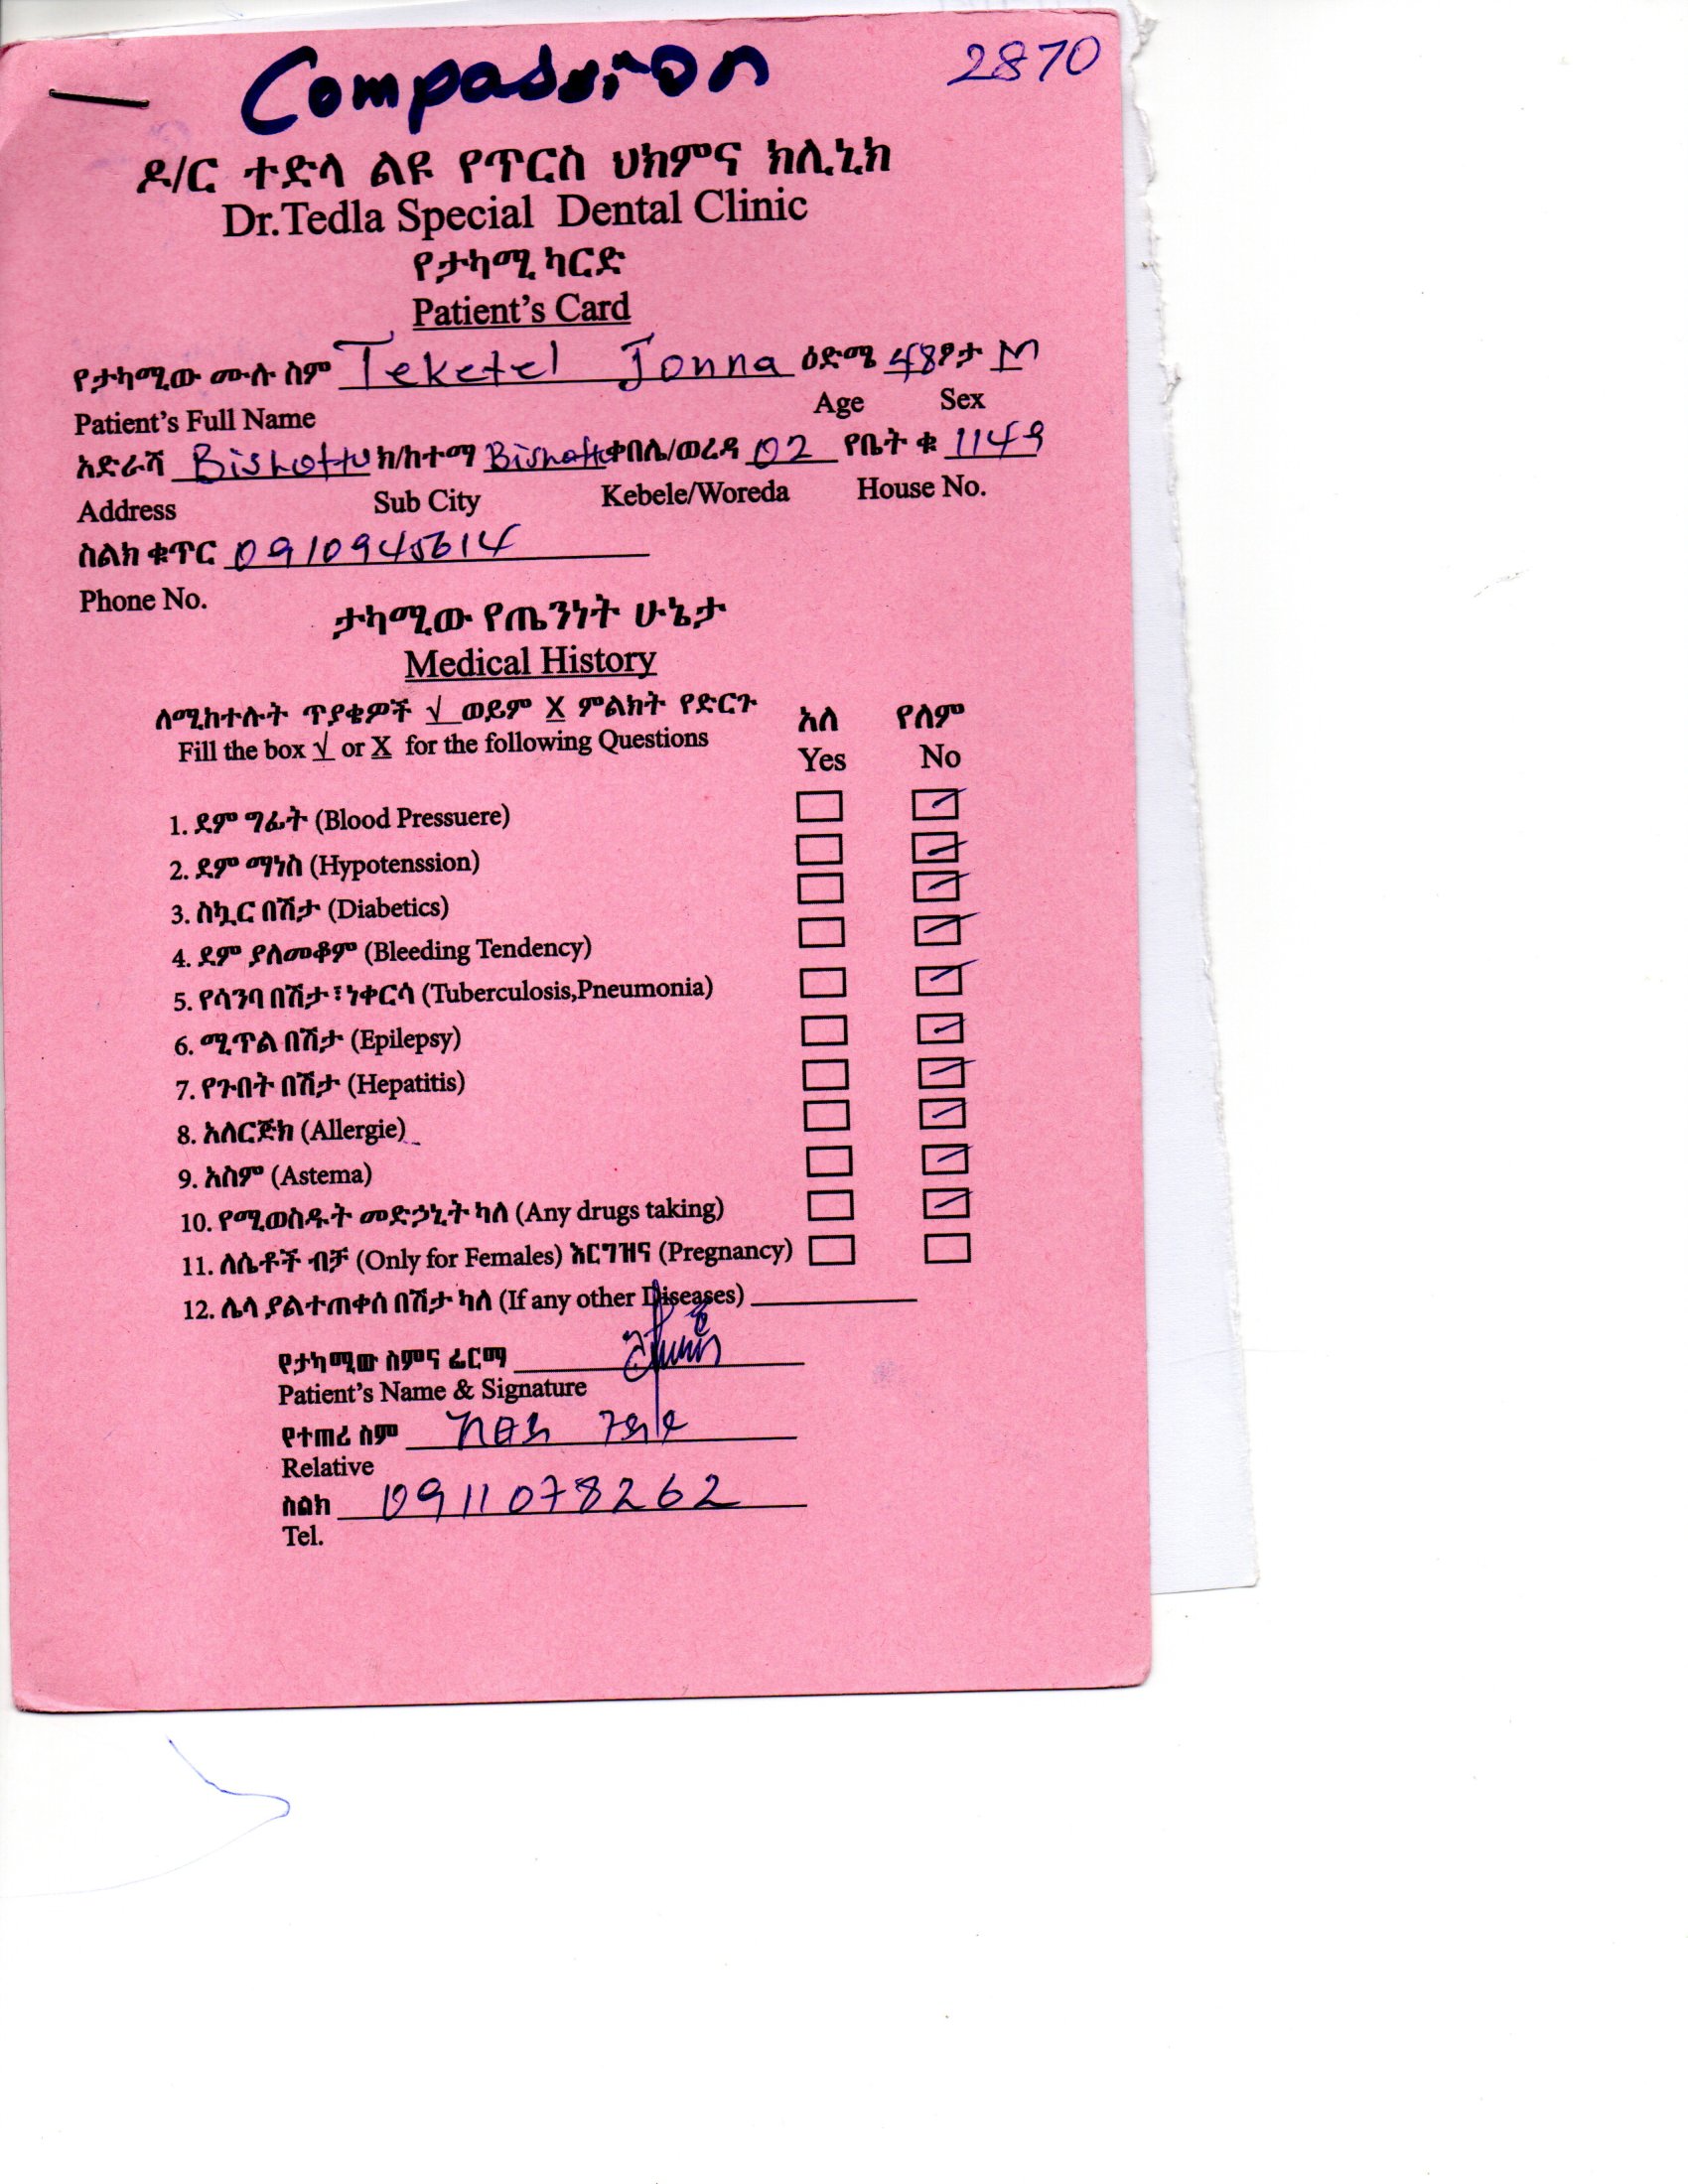 Compassion 2870
ዶ/ር ተድላ ልዩ የጥርስ ህክምና ክሊኒክ
Dr.Tedla Special Dental Clinic
የታካሚ ካርድ
Patient's Card
የታካሚው ሙሉ ስም Teketel Jonna ዕድሜ 48 ፆታ M
Patient's Full Name Age Sex
አድራሻ Bishoftu ክ/ከተማ Bishoftu ቀበሌ/ወረዳ 02 የቤት ቁ 1149
Address Sub City Kebele/Woreda House No.
ስልክ ቁጥር 0910945614
Phone No.
ታካሚው የጤንነት ሁኔታ
Medical History
ለሚከተሉት ጥያቄዎች √ ወይም X ምልክት የድርጉ አለ የለም
Fill the box √ or X for the following Questions Yes No
1. ደም ግፊት (Blood Pressuere)
2. ደም ማነስ (Hypotenssion)
3. ስኳር በሽታ (Diabetics)
4. ደም ያለመቆም (Bleeding Tendency)
5. የሳንባ በሽታ፣ነቀርሳ (Tuberculosis,Pneumonia)
6. ሚጥል በሽታ (Epilepsy)
7. የጉበት በሽታ (Hepatitis)
8. አለርጅክ (Allergie)
9. አስም (Astema)
10. የሚወስዱት መድኃኒት ካለ (Any drugs taking)
11. ለሴቶች ብቻ (Only for Females) እርግዝና (Pregnancy)
12. ሌላ ያልተጠቀሰ በሽታ ካለ (If any other Diseases)
የታካሚው ስምና ፊርማ
Patient's Name & Signature
የተጠሪ ስም
Relative
ስልክ 0911078262
Tel.